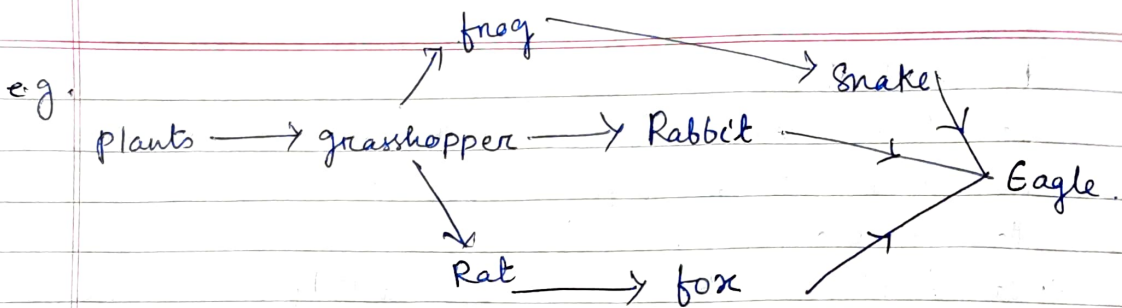 frog
e.g.
Snake
plants → grasshopper → Rabbit
Eagle.
Rat → fox